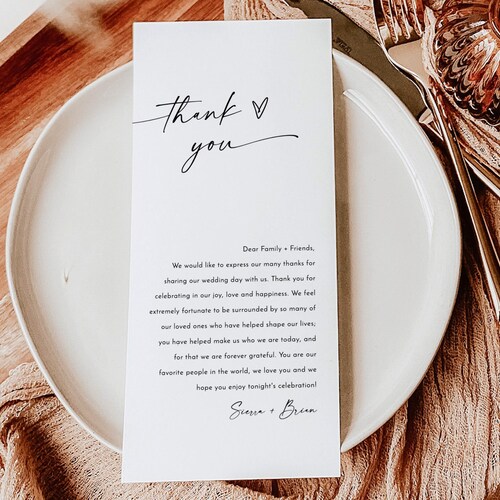 thank
you
Dear Family + Friends,
We would like to express our many thanks for
sharing our wedding day with us. Thank you for
celebrating in our joy, love and happiness. We feel
extremely fortunate to be surrounded by so many of
our loved ones who have helped shape our lives;
you have helped make us who we are today, and
for that we are forever grateful. You are our
favorite people in the world, we love you and we
hope you enjoy tonight's celebration!
Sierra + Brian